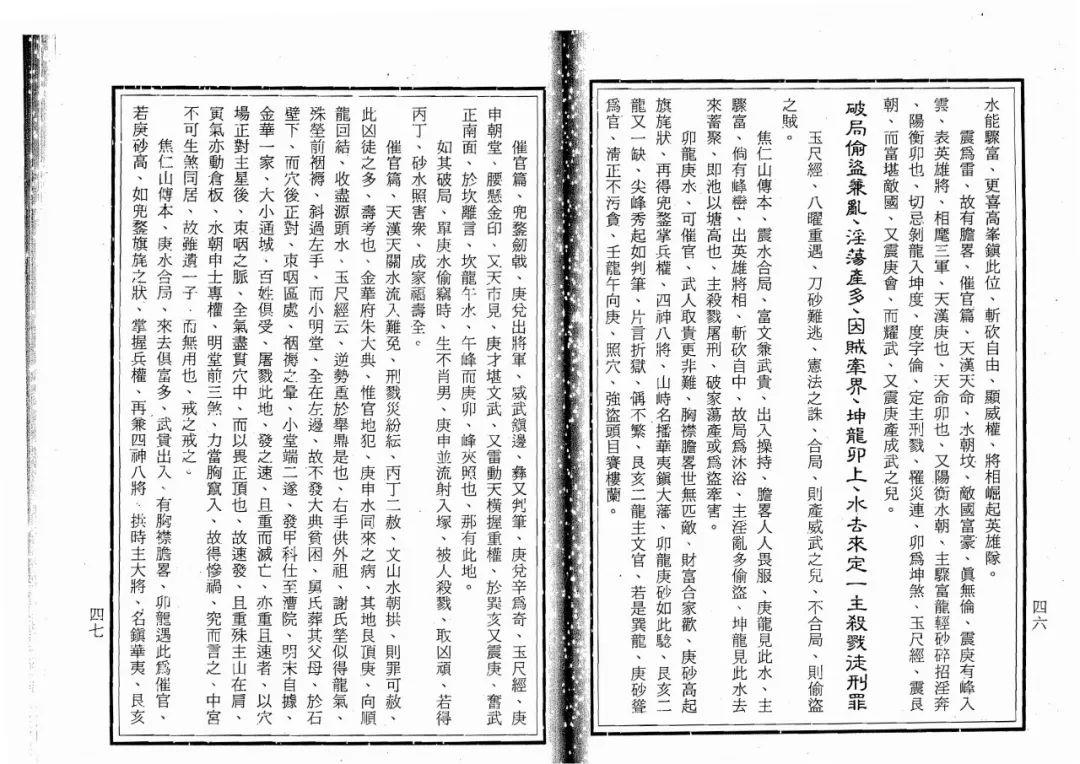 水能驟富、更喜高峯鎭此位、斬砍自由、顯威權、將相崛起英雄隊。
震爲雷、故有膽畧、催官篇、天漢天命、水朝坟、敵國富豪、眞無倫、震庾有峰入
雲、表英雄將、相麾三軍、天漢庚也、天命卯也、又陽衡水朝、主驟富龍輕砂碎招淫奔
、陽衡卯也、切忌剝龍入坤度、度字倫、定主刑戮、罹災連、卯爲坤煞、玉尺經、震艮
朝、而富堪敵國、又震庚會、而耀武、又震庚產成武之兒。
破局偷盜兼亂、淫蕩產多、因賊牽界、坤龍卯上、水去來定一主殺戮徒刑罪
玉尺經、八曜重遇、刀砂難逃、憲法之誅、合局、則產威武之兒、不合局、則偷盜
之賊。
焦仁山傳本、震水合局、富文兼武貴、出入操持、膽畧人人畏服、庚龍見此水、主
驟富、倘有峰巒、出英雄將相、斬砍自中、故局爲沐浴、主淫亂多偷盜、坤龍見此水去
來蓄聚、即池以塘高也、主殺戮屠刑、破家蕩產或爲盜牽害。
卯龍庚水、可催官、武人取貴更非難、胸襟膽畧世無匹敵、財富合家歡、庚砂高起
旗旄狀、再得兜鍪掌兵權、四神八將、山峙名播華夷鎭大藩、卯龍庚砂如此騐、艮亥二
龍又一缺、尖峰秀起如判筆、片言折獄、偶不繁、艮亥二龍主文官、若是巽龍、庚砂聳
爲官、淸正不污貪、壬龍午向庚、照穴、強盜頭目賽樓蘭。
四六
催官篇、兜鍪劒戟、庚兌出將軍、威武鎭邊、彝又判筆、庚兌辛爲奇、玉尺經、庚
申朝堂、腰懸金印、又天市見、庚才堪文武、又雷動天橫握重權、於巽亥又震庚、奮武
正南面、於坎離言、坎龍午水、午峰而庚卯、峰夾照也、那有此地。
如其破局、單庚水偷竊時、生不肖男、庚申並流射入塚、被人殺戮、取凶頑、若得
丙丁、砂水照害衆、成家福壽全。
催官篇、天漢天關水流入難免、刑戮災紛紜、丙丁二赦、文山水朝拱、則罪可赦、
此凶徒之多、壽考也、金華府朱大典、惟官地犯、庚申水同來之病、其地艮頂庚、向順
龍回結、收盡源頭水、玉尺經云、逆勢重於舉鼎是也、右手供外祖、謝氏塋似得龍氣、
殊塋前裀褥、斜過左手、而小明堂、全在左邊、故不發大典貧困、舅氏葬其父母、於石
壁下、而穴後正對、束咽區處、裀褥之暈、小堂端二遂、發甲科仕至漕院、明末自據、
金華一家、大小通城、百姓俱受、屠戮此地、發之速、且重而滅亡、亦重且速者、以穴
場正對主星後、束咽之脈、全氣盡貫穴中、而以畏正頂也、故速發、且重殊主山在肩、
寅氣亦動倉板、水朝申士專權、明堂前三煞、力當胸竄入、故得慘禍、究而言之、中宮
不可生煞同居、故雖遺一子、而無用也、戒之戒之。
焦仁山傳本、庚水合局、來去俱富多、武貴出入、有胸襟膽畧、卯龍遇此爲催官、
若庚砂高、如兜鍪旗旄之狀、掌握兵權、再兼四神八將、拱時主大將、名鎭華夷、艮亥
四七